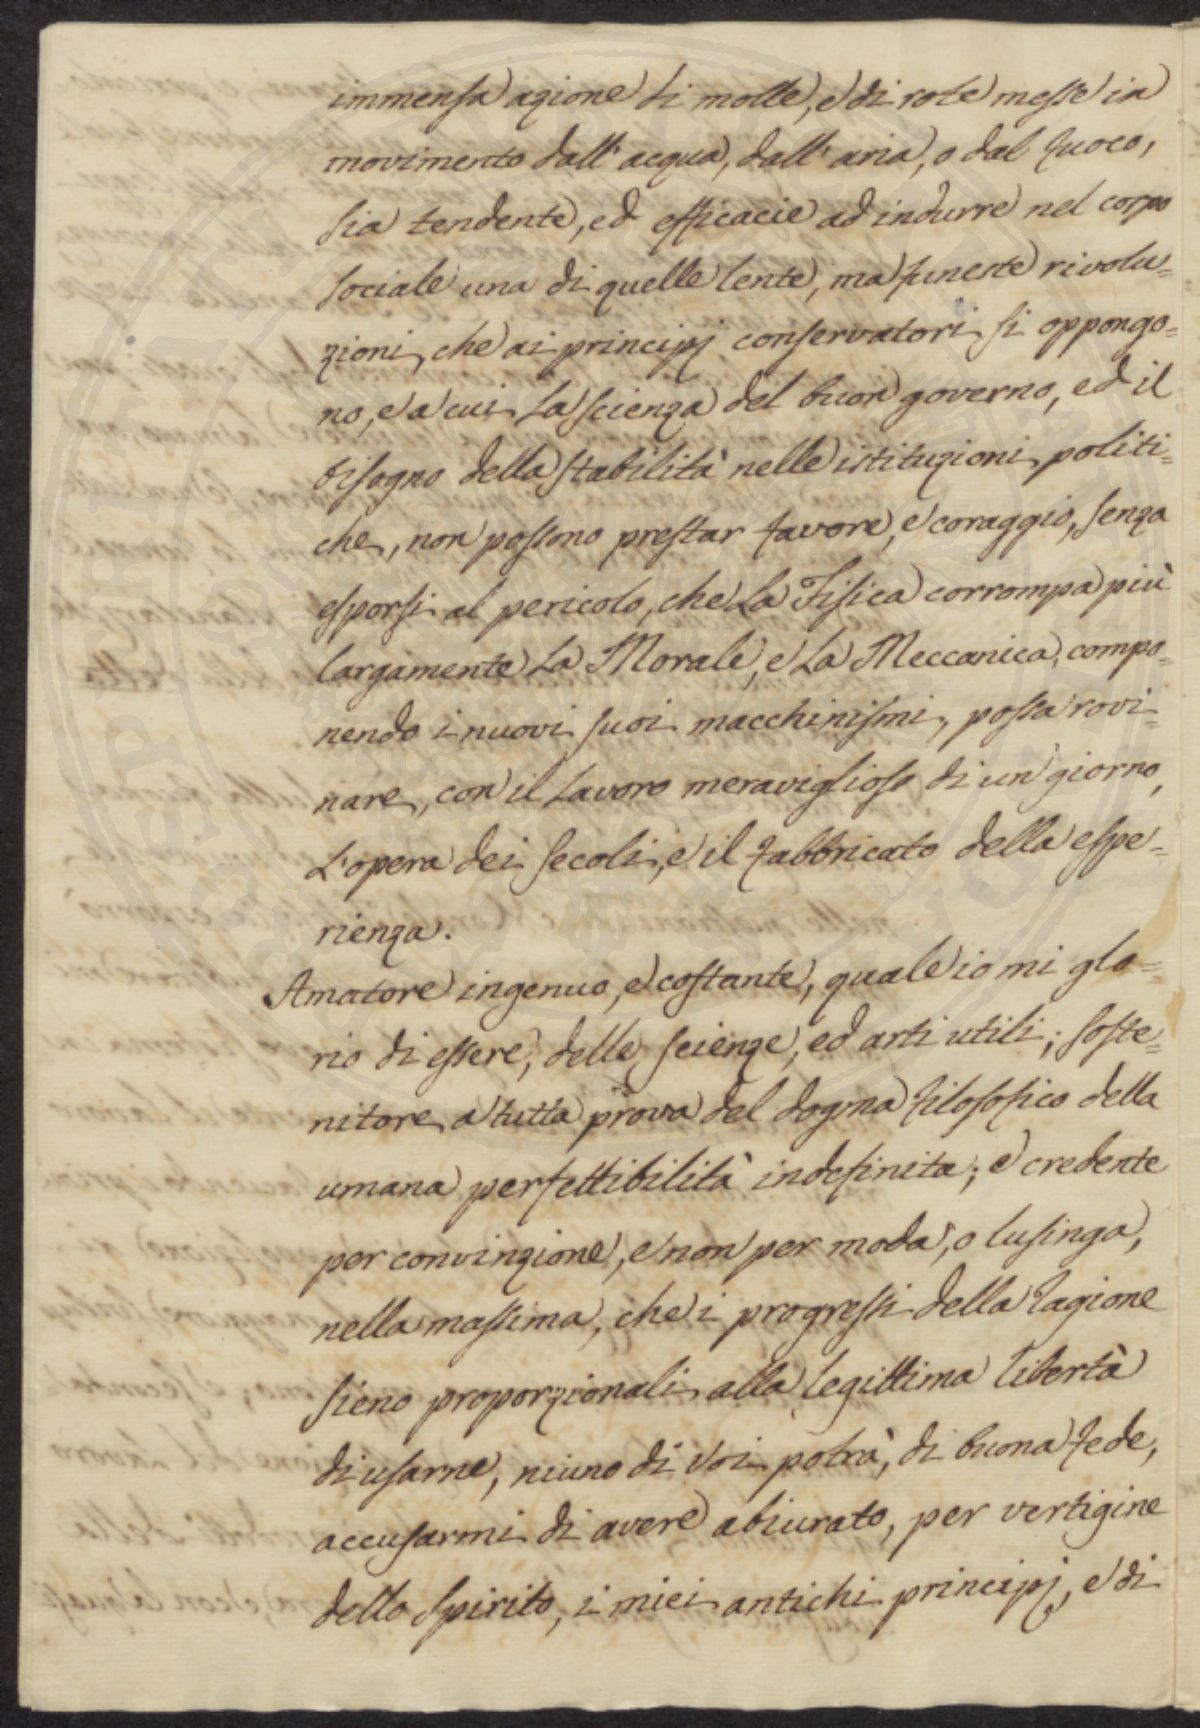 immensa azione di molle, e di rote messe in
movimento dall' acqua, dall' aria, o dal fuoco,
sia tendente, ed efficacie ad indurre nel corpo
sociale una di quelle lente, ma funeste rivolu=
zioni, che ai principj conservatori si oppongo=
no, e a cui La scienza del buon governo, ed il
bisogno della stabilità nelle istituzioni politi=
che, non possono prestar favore, e coraggio, senza
esporsi al pericolo, che La Fisica corrompa più
largamente La Morale, e La Meccanica, compo=
nendo i nuovi suoi macchinismi, possa rovi=
nare, con il Lavoro meraviglioso di un giorno,
L'opera dei secoli, e il fabbricato della espe=
rienza.
Amatore ingenuo, e costante, quale io mi glo=
rio di essere, delle scienze, ed arti utili; soste=
nitore a tutta prova del dogma filosofico della
umana perfettibilità indefinita; e credente
per convinzione, e non per moda, o lusinga,
nella massima, che i progressi della ragione
sieno proporzionali alla legittima libertà
di usarne, niuno di Voi potrà, di buona fede,
accusarmi di avere abiurato, per vertigine
dello spirito, i miei antichi principj, e di